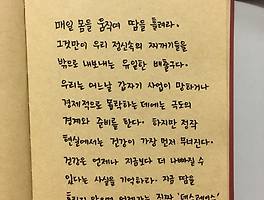 매일 몸을 움직여 땀을 흘려라.
그것만이 우리 정신속의 찌꺼기들을
밖으로 내보내는 유일한 배출구다.
우리는 어느날 갑자기 사업이 망하거나
경제적으로 몰락하는 데에는 극도의
경계와 준비를 한다. 하지만 정작
현실에서는 건강이 가장 먼저 무너진다.
건강은 언제나 지금보다 더 나빠질 수
있다는 사실을 기억하라. 지금 땀을
흘리지 않으면 언젠가는 진짜